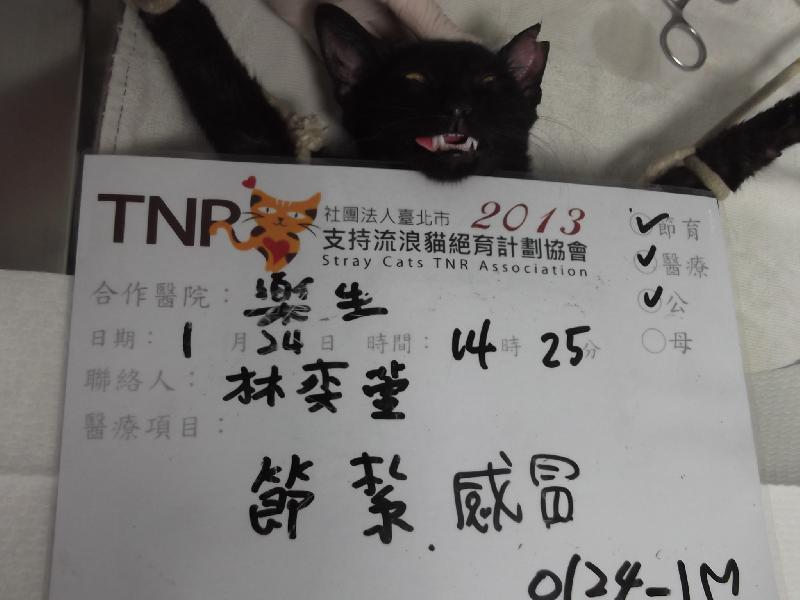 TNR 社團法人臺北市 2013
支持流浪貓絕育計劃協會
Stray Cats TNR Association
✓節育
✓醫療
✓公
○母
合作醫院：樂生
日期：1月24日 時間：14時25分
聯絡人：林奕萱
醫療項目：
節紮 感冒
0124-1M